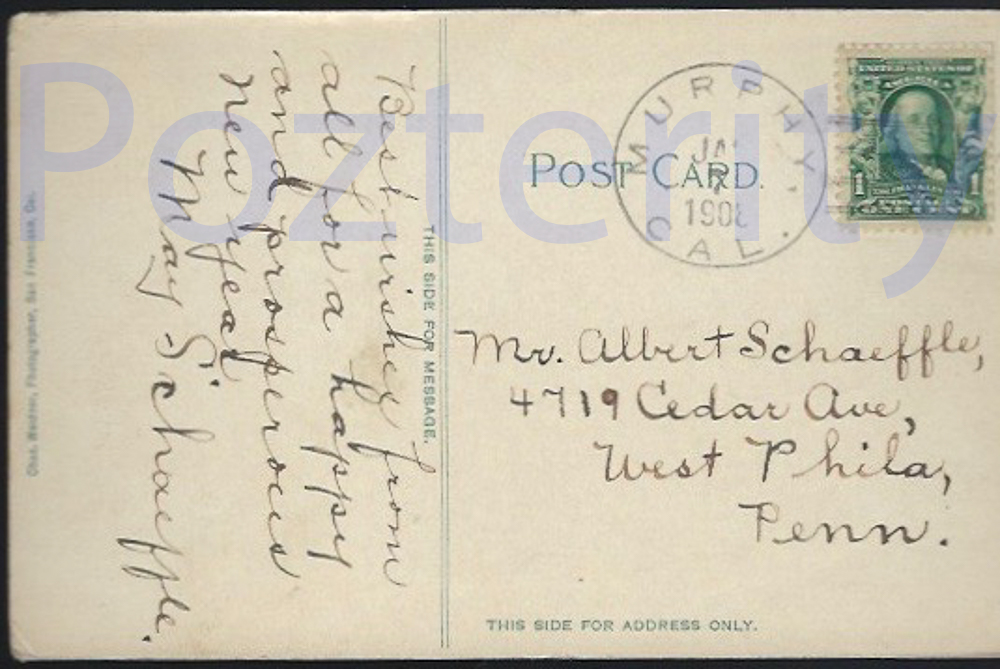 Best wishes from
all for a happy
and prosperous
new year.
May Schaeffle.
THIS SIDE FOR MESSAGE.
Chas. Weidner, Photographer, San Francisco, Cal.
POST CARD.
MURPHY,
CAL.
JA
7
1908
UNITED STATES OF
AMERICA
1 1
FRANKLIN
ONE CENT
Mr. Albert Schaeffle,
4719 Cedar Ave,
West Phila,
Penn.
THIS SIDE FOR ADDRESS ONLY.
Pozterity